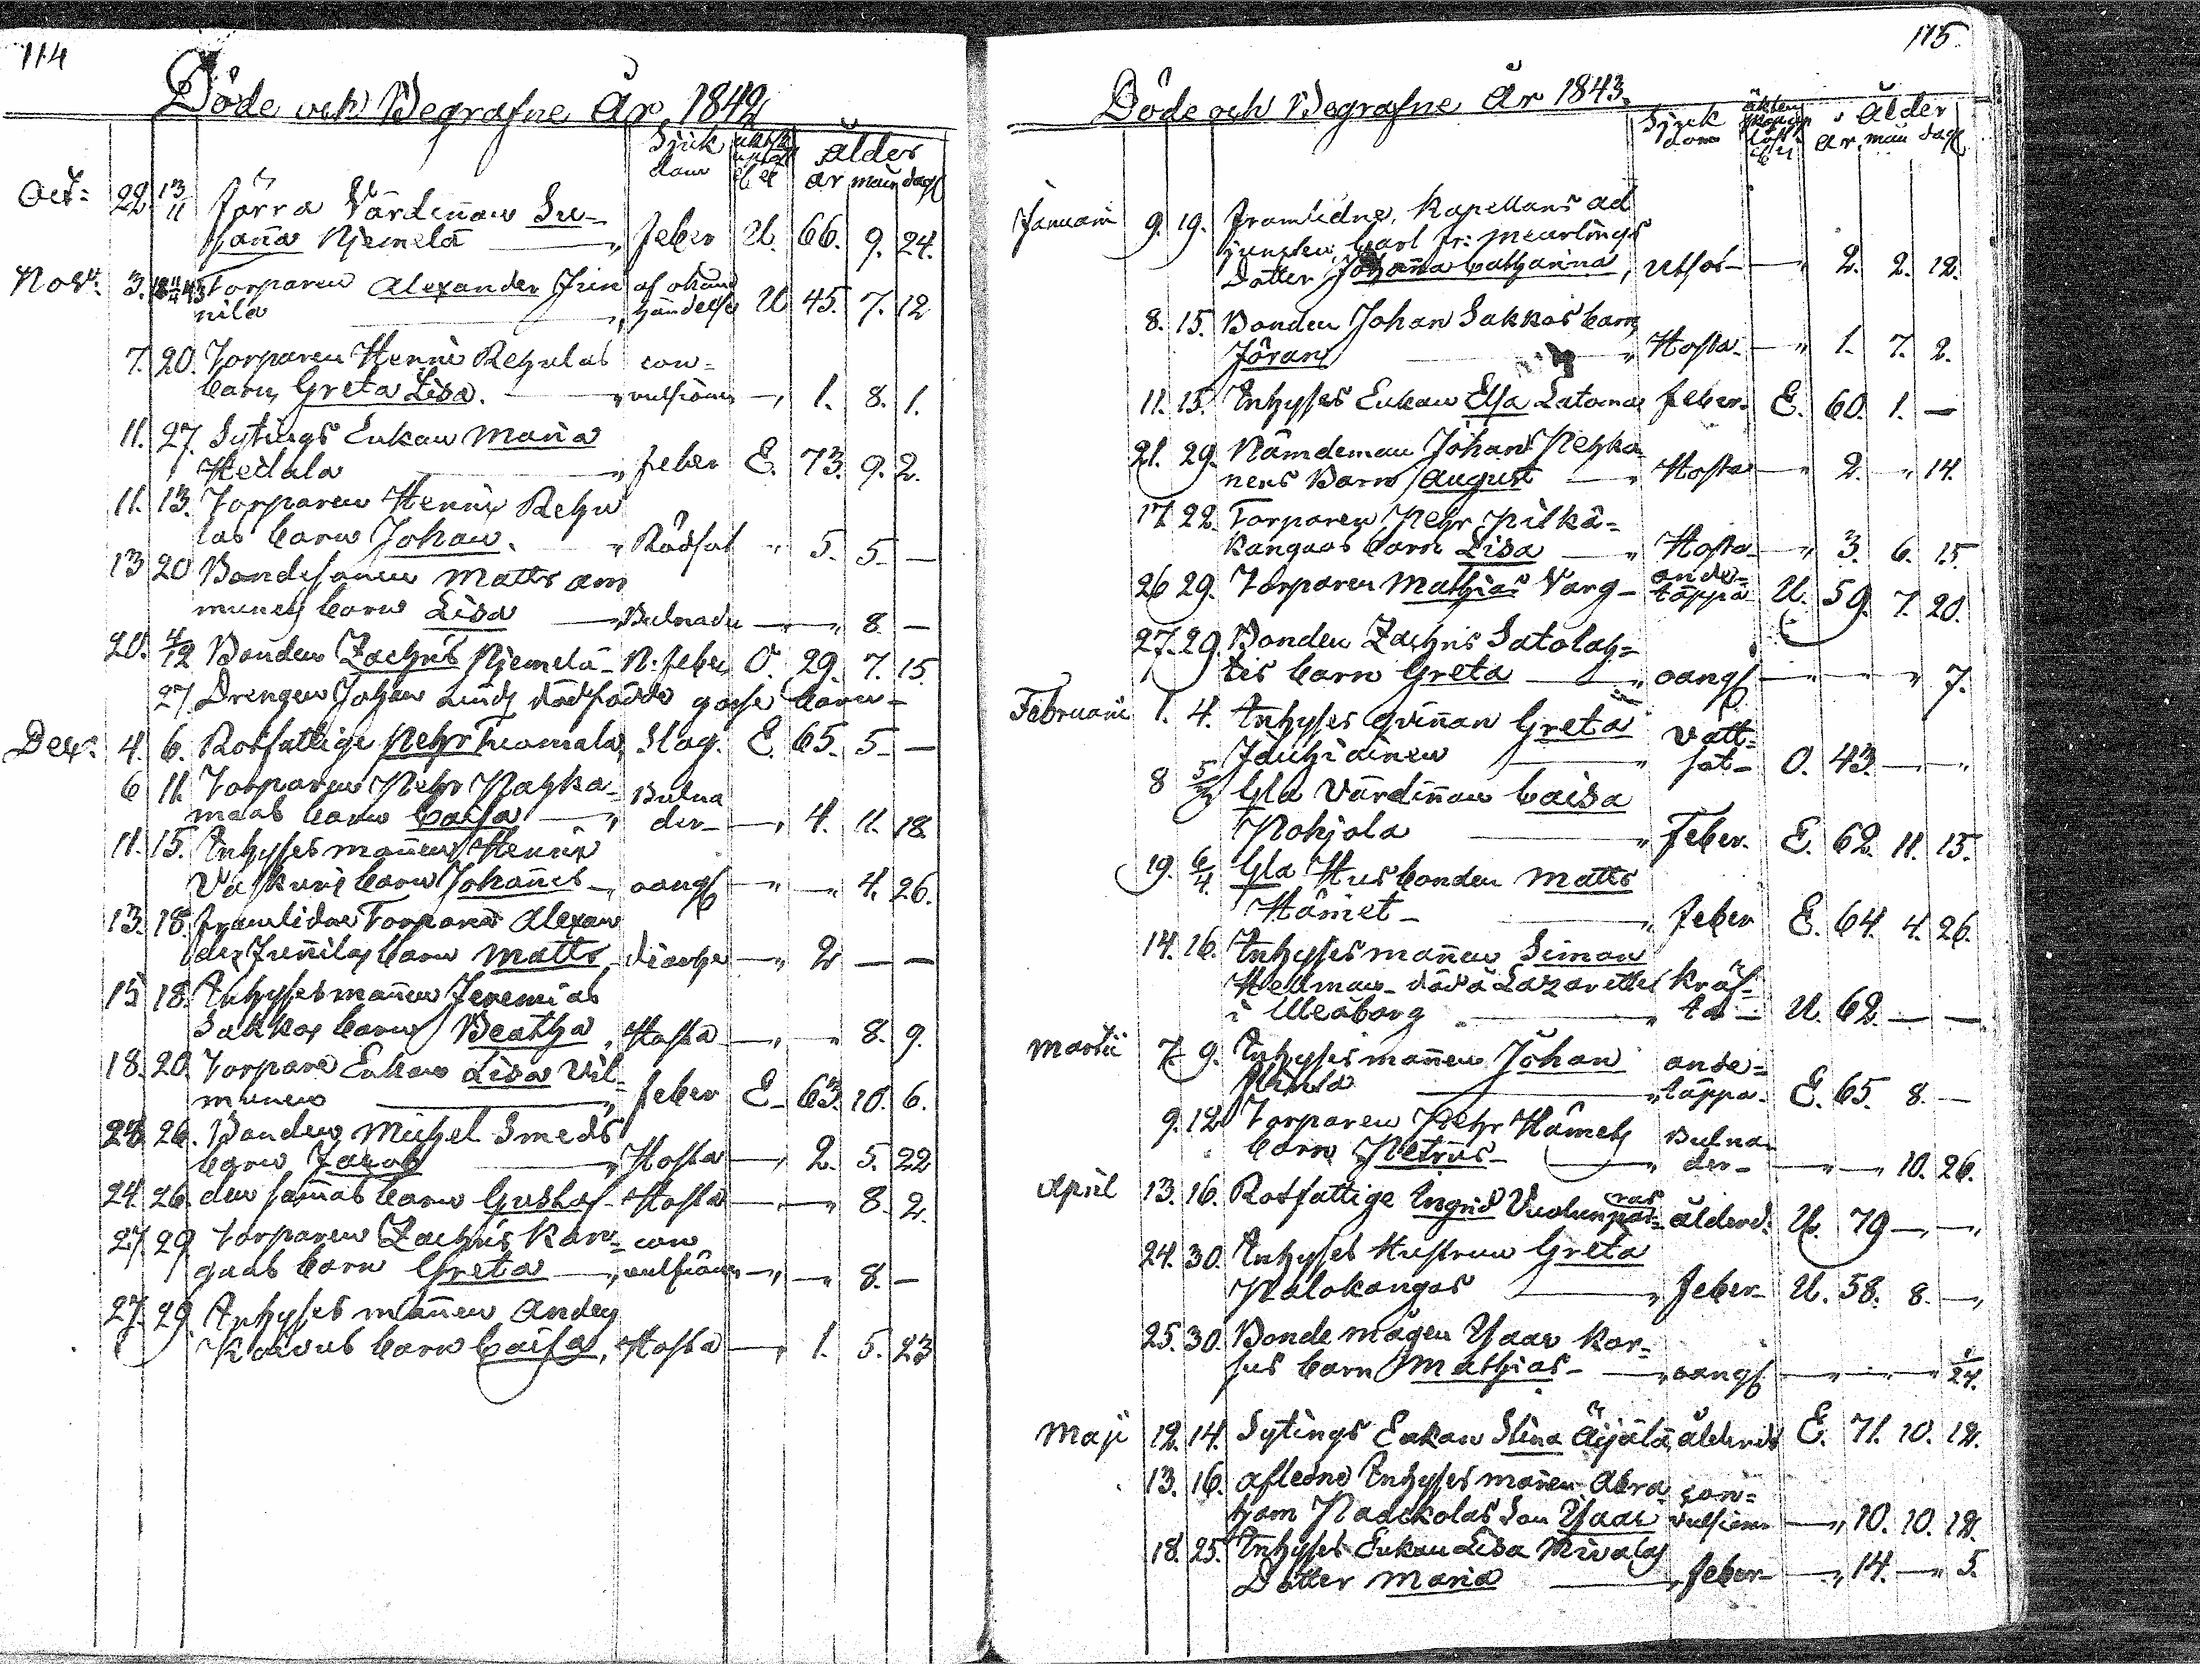 114
Döde och Begrafne År 1842
Sjuk
dom
Ålder
år mån dag
Oct: 22. 13/11 Förra Värdinnan Su-
sanna Njemelä — " feber U. 66. 9. 24.
Nov: 3. Torparen Alexander Jun af
nila — " händelse U 45. 7. 12
7. 20. Torparen Henric Rehulas con-
barn Greta Lisa. — " vulsioner — " 1. 8. 1.
11. 27. Sytings Enkan Maria
Heilala — " feber E. 73. 9. 2.
11. 13. Torparen Henric Rehu
las barn Johan. — " Rödsot " 5. 5. —
13 20 Bondesonen Matts Am
munes barn Lisa — " Bulnader — " — " 8. —
20. 4/12 Bonden Zachris Njemelä - N. feber O. 29. 7. 15.
27 Drengen Johan dödfödde gosse barn -
Dec: 4. 6. Rotfattige Pehr Tuomala, Slag. E. 65. 5. —
6 11. Torparen Pehr Nahka- Bulna
maas barn Caisa — " der — " 4. 11. 18.
11. 15. Inhyses mannen Henric
barn Johannes — " oangf — " — " 4. 26.
13. 18. framlidne Torparen Alexan
der Junnilas barn Matts, diarhe — " 2 — —
15 18. Inhyses mannen Jeremias
Sakkos barn Beatha, Hosta — " — " 8. 9.
18. 20. Torpare Enkan Lisa Vil-
munen — " feber E. 63. 10. 6.
24. 26. Bonden Michel Smeds
barn Jacob — " Hosta — " 2. 5. 22
24. 26. den sammas barn Gustaf - Hosta — " — " 8. 2.
27. 29 Torparen Zachris Kan- con
gaas barn Greta — " vulsioner — " — " 8. —
27. 29. Inhyses mannen Anders
Koivus barn Caisa, Hosta — " 1. 5. 23
115.
Döde och Begrafne År 1843.
Sjuk
dom
Ålder
år mån dag
Januari 9. 19. framlidne, Kapellans ad
juncten, Carl Fr: Meurlings
Dotter Johanna Catharina, Utsot — " 2. 2. 12.
8. 15. Bonden Johan Sakkos barn
Jöran — " Hosta — " 1. 7. 2.
11. 15. Inhyses Enkan Elsa Latoma feber. E. 60. 1. —
21. 29. Nämdeman Johan Pehka-
nens Barn August — " Hosta — " 2. — " 14.
17. 22. Torparen Pehr Pitkä-
kangaas barn Lisa — " Hosta — " 3. 6. 15.
26 29. Torparen Mathias Varg - ande-
täppa U. 59. 7. 20.
27. 29. Bonden Zachris Satolah-
tis barn Greta — " oangf — " — " — " 7.
Februarii 1. 4. Inhyses qvinnan Greta
Jauhiainen — " vatt-
sot - O. 43. — " — "
8 5/3 Gla Värdinnan Caisa
Pohjola — " Feber. E. 62. 11. 15.
19. 6/4 Gla Husbonden Matts
Hämet — " feber E. 64. 4. 26.
14. 16. Inhyses mannen Simon
Hedman - död å Lazarettet kräf-
i Uleåborg — " ta - U. 62. — —
Martii 7. 9. Inhyses mannen Johan ande-
— " täppa - E. 65. 8. —
9. 12. Torparen Pehr Hämets Bulna-
barn Petrus - — " der - — " — " 10. 26.
April 13. 16. Rotfattige Ingrid ålderd. U. 79 — " — "
24. 30. Inhyses Hustrun Greta
Palokangas — " feber - U. 58. 8. — "
25. 30. Bonde mågen Isaac Kor-
sus barn Mathias - — " oangf. — " — " — " 1/24.
Maji 12. 14. Sytings Enkan Stina Äijälä, ålderd E. 71. 10. 12.
13. 16. afledne Inhyses mannen Abra- con-
ham Naackolas Son Isaac vulsion — " 10. 10. 12.
18. 25. Inhyses Enkan Lisa Nivalas
Dotter Maria — " feber — " 14. — " 5.